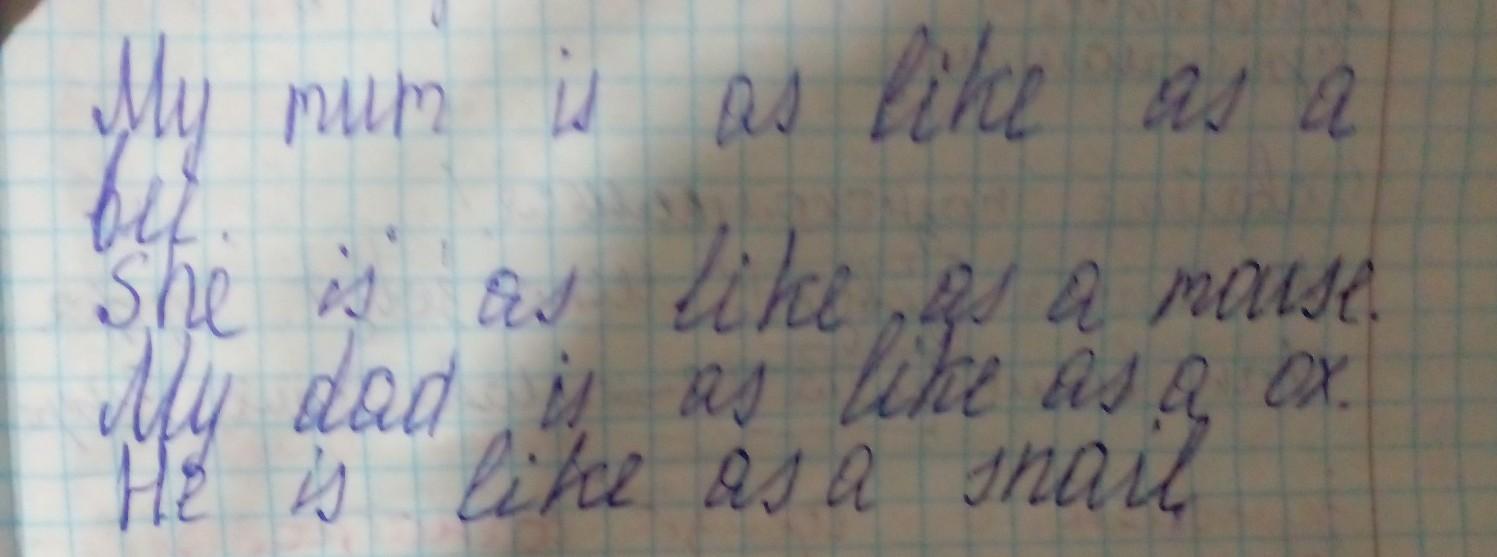 My mum is as like as a
bee.
She is as like as a mouse.
My dad is as like as a ox.
He is like as a snail.